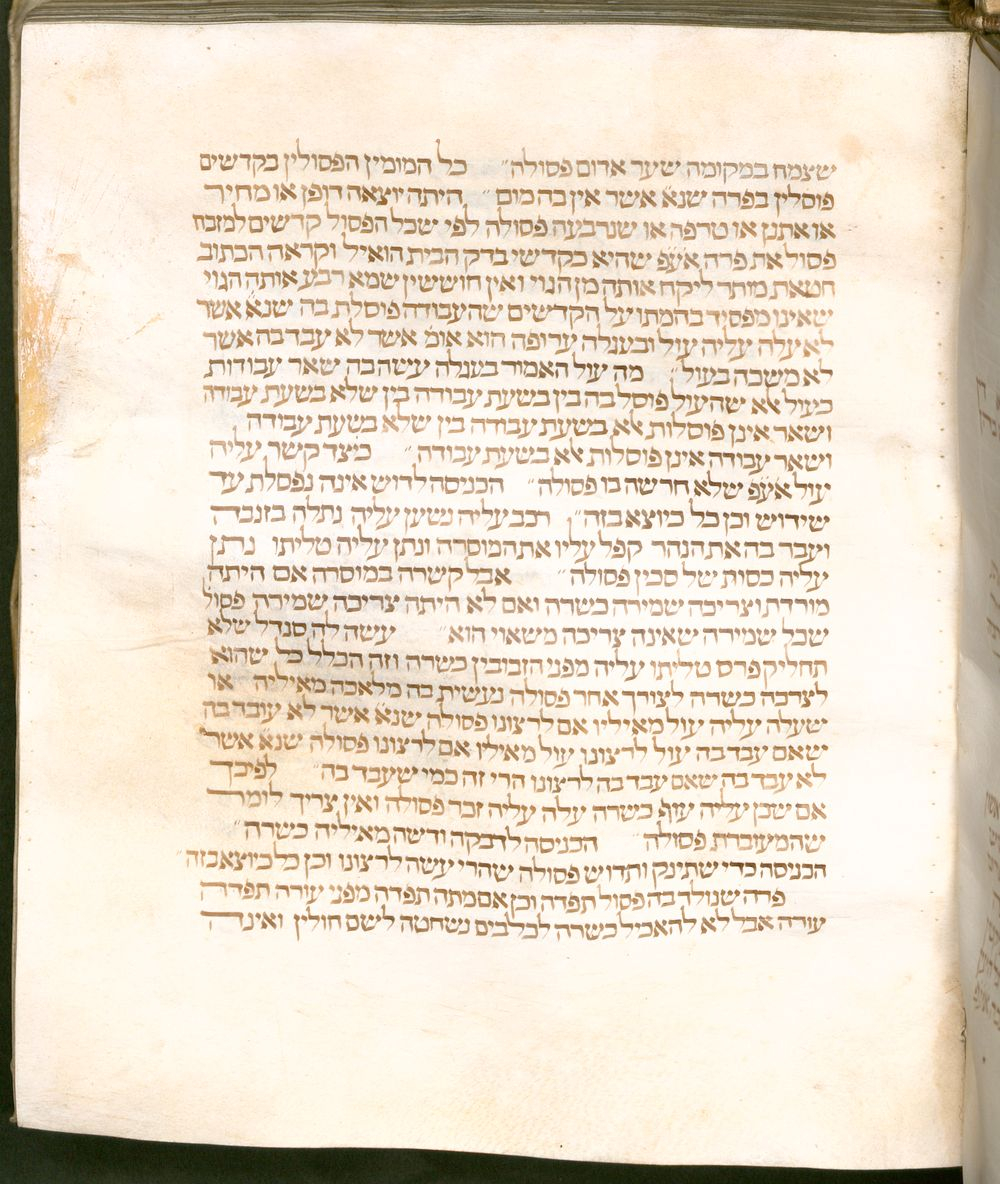 שצמח במקומה שער אדום פסולה״ כל המומין הפסולין בקדשים
פוסלין בפרה שנא׳ אשר אין בה מום״ היתה יוצאה דופן או מחיר
או אתנן או טרפה או שנרבעה פסולה לפי שכל הפסול קדשים למזבח
פסול את פרה אע״פ שהיא כקדשי בדק הבית הואיל וקראה הכתוב
חטאת מותר ליקח אותה מן הגוי ואין חוששין שמא רבע אותה הגוי
שאינו מפסיד בהמתו על הקדשים שהעבודה פוסלת בה שנא׳ אשר
לא עלה עליה עול ובעגלה ערופה הוא אומ׳ אשר לא עבד בה אשר
לא משכה בעול״ מה עול האמור בעגלה עשה בה שאר עבודות
כעול אלא שהעול פוסל בה בין בשעת עבודה בין שלא בשעת עבודה
ושאר אינן פוסלות אלא בשעת עבודה בין שלא בשעת עבודה
ושאר עבודה אינן פוסלות אלא בשעת עבודה״ כיצד קשר עליה
עול אע״פ שלא חרשה בו פסולה״ הכניסה לדוש אינה נפסלת עד
שידוש וכן כל כיוצא בזה״ רכב עליה נשען עליה נתלה בזנבה
ועבר בה את הנהר קפל עליו את המוסרה ונתן עליה טליתו נתן
עליה כסות של סכין פסולה״ אבל קשרה במוסרה אם היתה
מורדת וצריכה שמירה כשרה ואם לא היתה צריכה שמירה פסול
שכל שמירה שאינה צריכה משאוי הוא״ עשה לה סנדל שלא
תחליק פרס טליתו עליה מפני הזבובין כשרה וזה הכלל כל שהוא
לצרכה כשרה לצורך אחר פסולה נעשית בה מלאכה מאיליה או
שעלה עליה עול מאיליו אם לרצונו פסולה שנא׳ אשר לא עובד בה
שאם עבד בה עול לרצונו עול מאיליו אם לרצונו פסולה שנא׳ אשר
לא עבד בה שאם עבד בה לרצונו הרי זה כמי שעבד בה״ לפיכך
אם שכן עליה עוף כשרה עלה עליה זכר פסולה ואין צריך לומר
שהמעוברת פסולה״ הכניסה לרבקה ודשה מאיליה כשרה״
הכניסה כדי שתינק ותדוש פסולה שהרי עשה לרצונו וכן כל כיוצא בזה״
פרה שנולד בה פסול תפדה וכן אם מתה תפדה מפני עורה תפדה
עורה אבל לא להאכיל כשרה לכלבים נשחטה לשם חולין ואינה